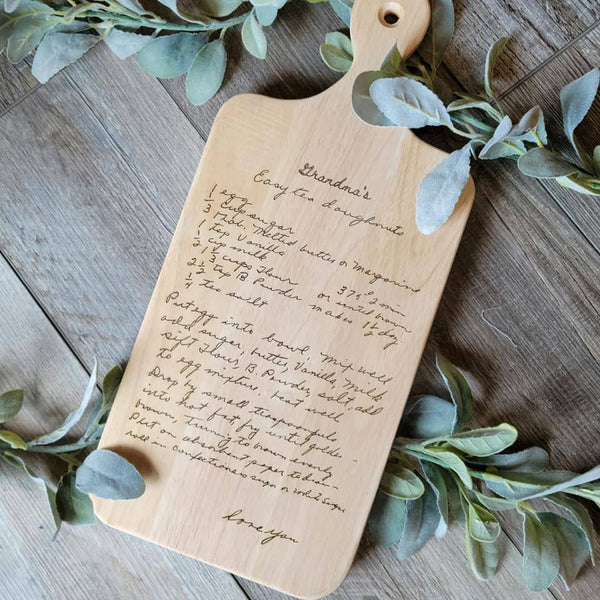 Grandma's
Easy tea doughnuts
1 egg
cup sugar
Tbls. Melted butter or Margarine
1 tsp Vanilla
cup milk
2 cups Flour 375° 2 min
2 tsp B Powder or until brown
tea salt makes 1½ doz
Put egg into bowl, mix well
add sugar, butter, Vanilla, Milk
sift Flour, B. Powder, salt, add
to egg mixture, beat well
Drop by small teaspoonfuls
into hot fat fry until golden
brown, turning to brown evenly
Put on absorbent paper to drain
roll in confectioners sugar or white Sugar
love you